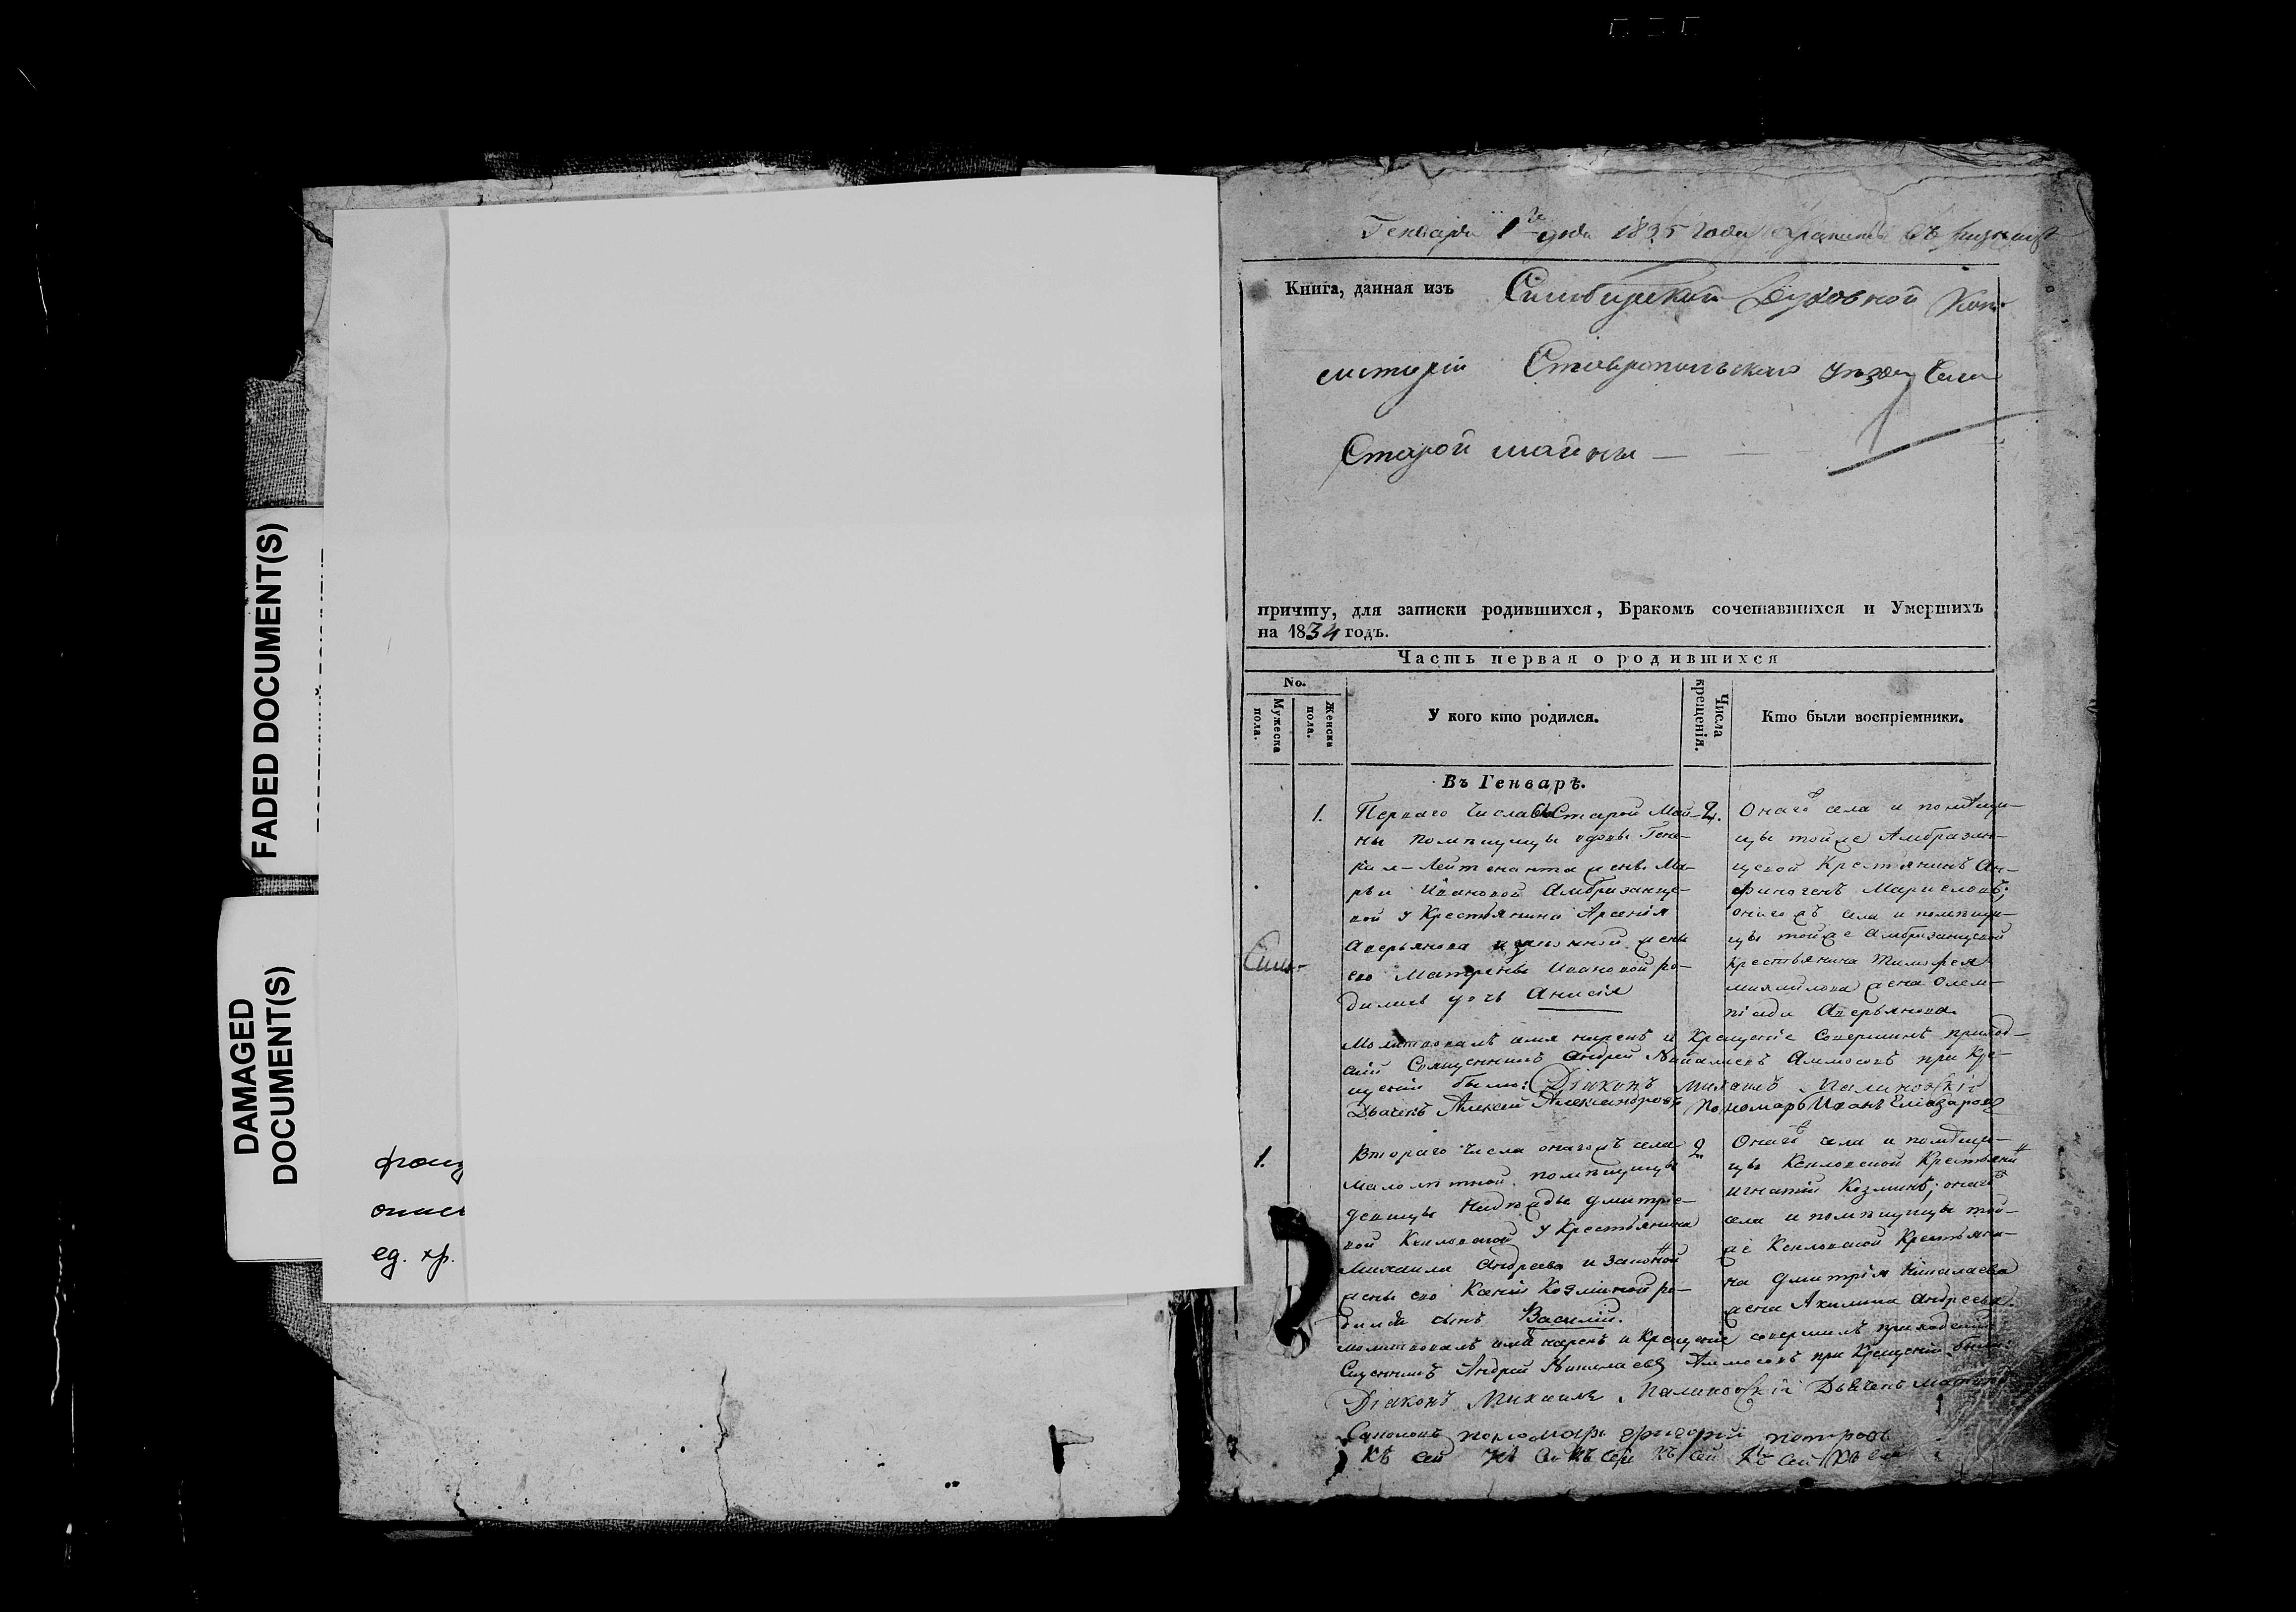 FADED DOCUMENT(S)
DAMAGED
DOCUMENT(S)
фонд
опись
ед. хр.
Генваря 1го дня 1835 года
Книга, данная изъ Симбирской Духовной Кон-
систоріи Ставропольскаго уѣзда Села
Старой майны —
причту, для записки родившихся, Бракомъ сочетавшихся и Умершихъ
на 1834 годъ.
Часть первая о родившихся
No.
Мужеска
пола.
Женска
пола.
У кого кто родился.
Числа
крещенія.
Кто были воспріемники.
Въ Генварѣ.
1.
Перваго числа Старой Май-
ны помѣщицы вдовы Гене-
рал-Лейтенанта жены Ма-
рьи Ивановой Амбразанце-
вой у Крестьянина Арсенія
Аверьянова и законной жены
его Матрены Ивановой ро-
дилась дочь Анисія
2.
Онагожъ села и помѣщи-
цы тойже Амбразан-
цевой Крестьянинъ Ан-
финогенъ
онагожъ села и помѣщи-
цы тойже Амбразанцевой
крестьянина Тимофея
жена Олем-
піада Аверьянова
Молитвовалъ имя нарекъ и Крещеніе Совершилъ приход-
скій Священникъ Андрей Николаевъ Аммосовъ при Кре-
щеніи были: Діаконъ Михаилъ Малиновскій
Дьячекъ Алексей Александровъ Пономарь Иванъ Еліазаровъ
1.
Втораго числа онагожъ села
малолѣтной помѣщицы
девицы Надежды Дмитріе-
вой у Крестьянина
Михаила Андреева и законной
жены его Ксеніи Козминой ро-
дился сынъ Василій.
2
Онагожъ села и помѣщи-
цы Крестьянинъ
Игнатій Козминъ; онагожъ
села и помѣщицы той-
же Крестьяни-
на Дмитрія Николаева
жена Акилина Андреева.
молитвовалъ имя нарекъ и Крещеніе совершилъ приходскій
Священникъ Андрей Николаевъ Аммосовъ при Крещеніи были:
Діаконъ Михаилъ Малиновскій Дьячекъ
пономарь Григорій Петровъ
Къ сей